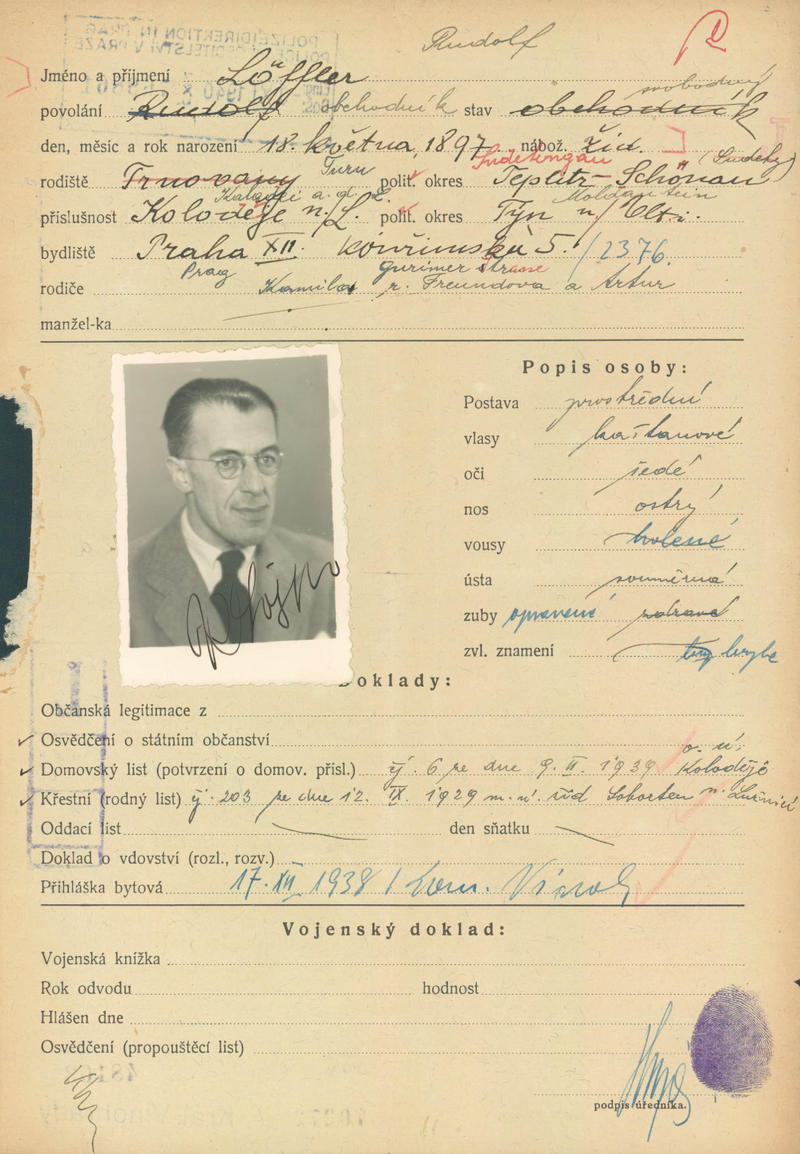 Rudolf R
Jméno a přijmení Löffler
svobodný
povolání Rudolf obchodník stav obchodník
den, měsíc a rok narození 18. května, 1897 nábož. žid.
Turn Sudetengau (Sudety)
rodiště Trnovany polit. okres Teplitz-Schönau
Kaladei a. d. L. Moldautein
příslušnost Koloděje n/L. polit. okres Týn n/Vlt.
bydliště Praha XII. Kouřimská 5. /2376.
Prag Gurimer Strasse
rodiče Kamila r. Freundova a Artur
manžel-ka
Popis osoby:
Postava prostřední
vlasy kaštanové
oči šedé
nos ostrý
vousy holené
ústa souměrná
zuby opravené zdravé
zvl. znamení brýle
Doklady:
Občanská legitimace z
Osvědčení o státním občanství
o. ú.
Domovský list (potvrzení o domov. přísl.) čj. 6 ze dne 9. II. 1939 Koloděje
Křestní (rodný list) čj. 203 ze dne 12. IX. 1929 m. ú. žid n. Lužnicí
Oddací list den sňatku
Doklad o vdovství (rozl., rozv.)
Přihláška bytová 17. XII. 1938 / kom.
Vojenský doklad:
Vojenská knížka
Rok odvodu hodnost
Hlášen dne
Osvědčení (propouštěcí list)
podpis úředníka.